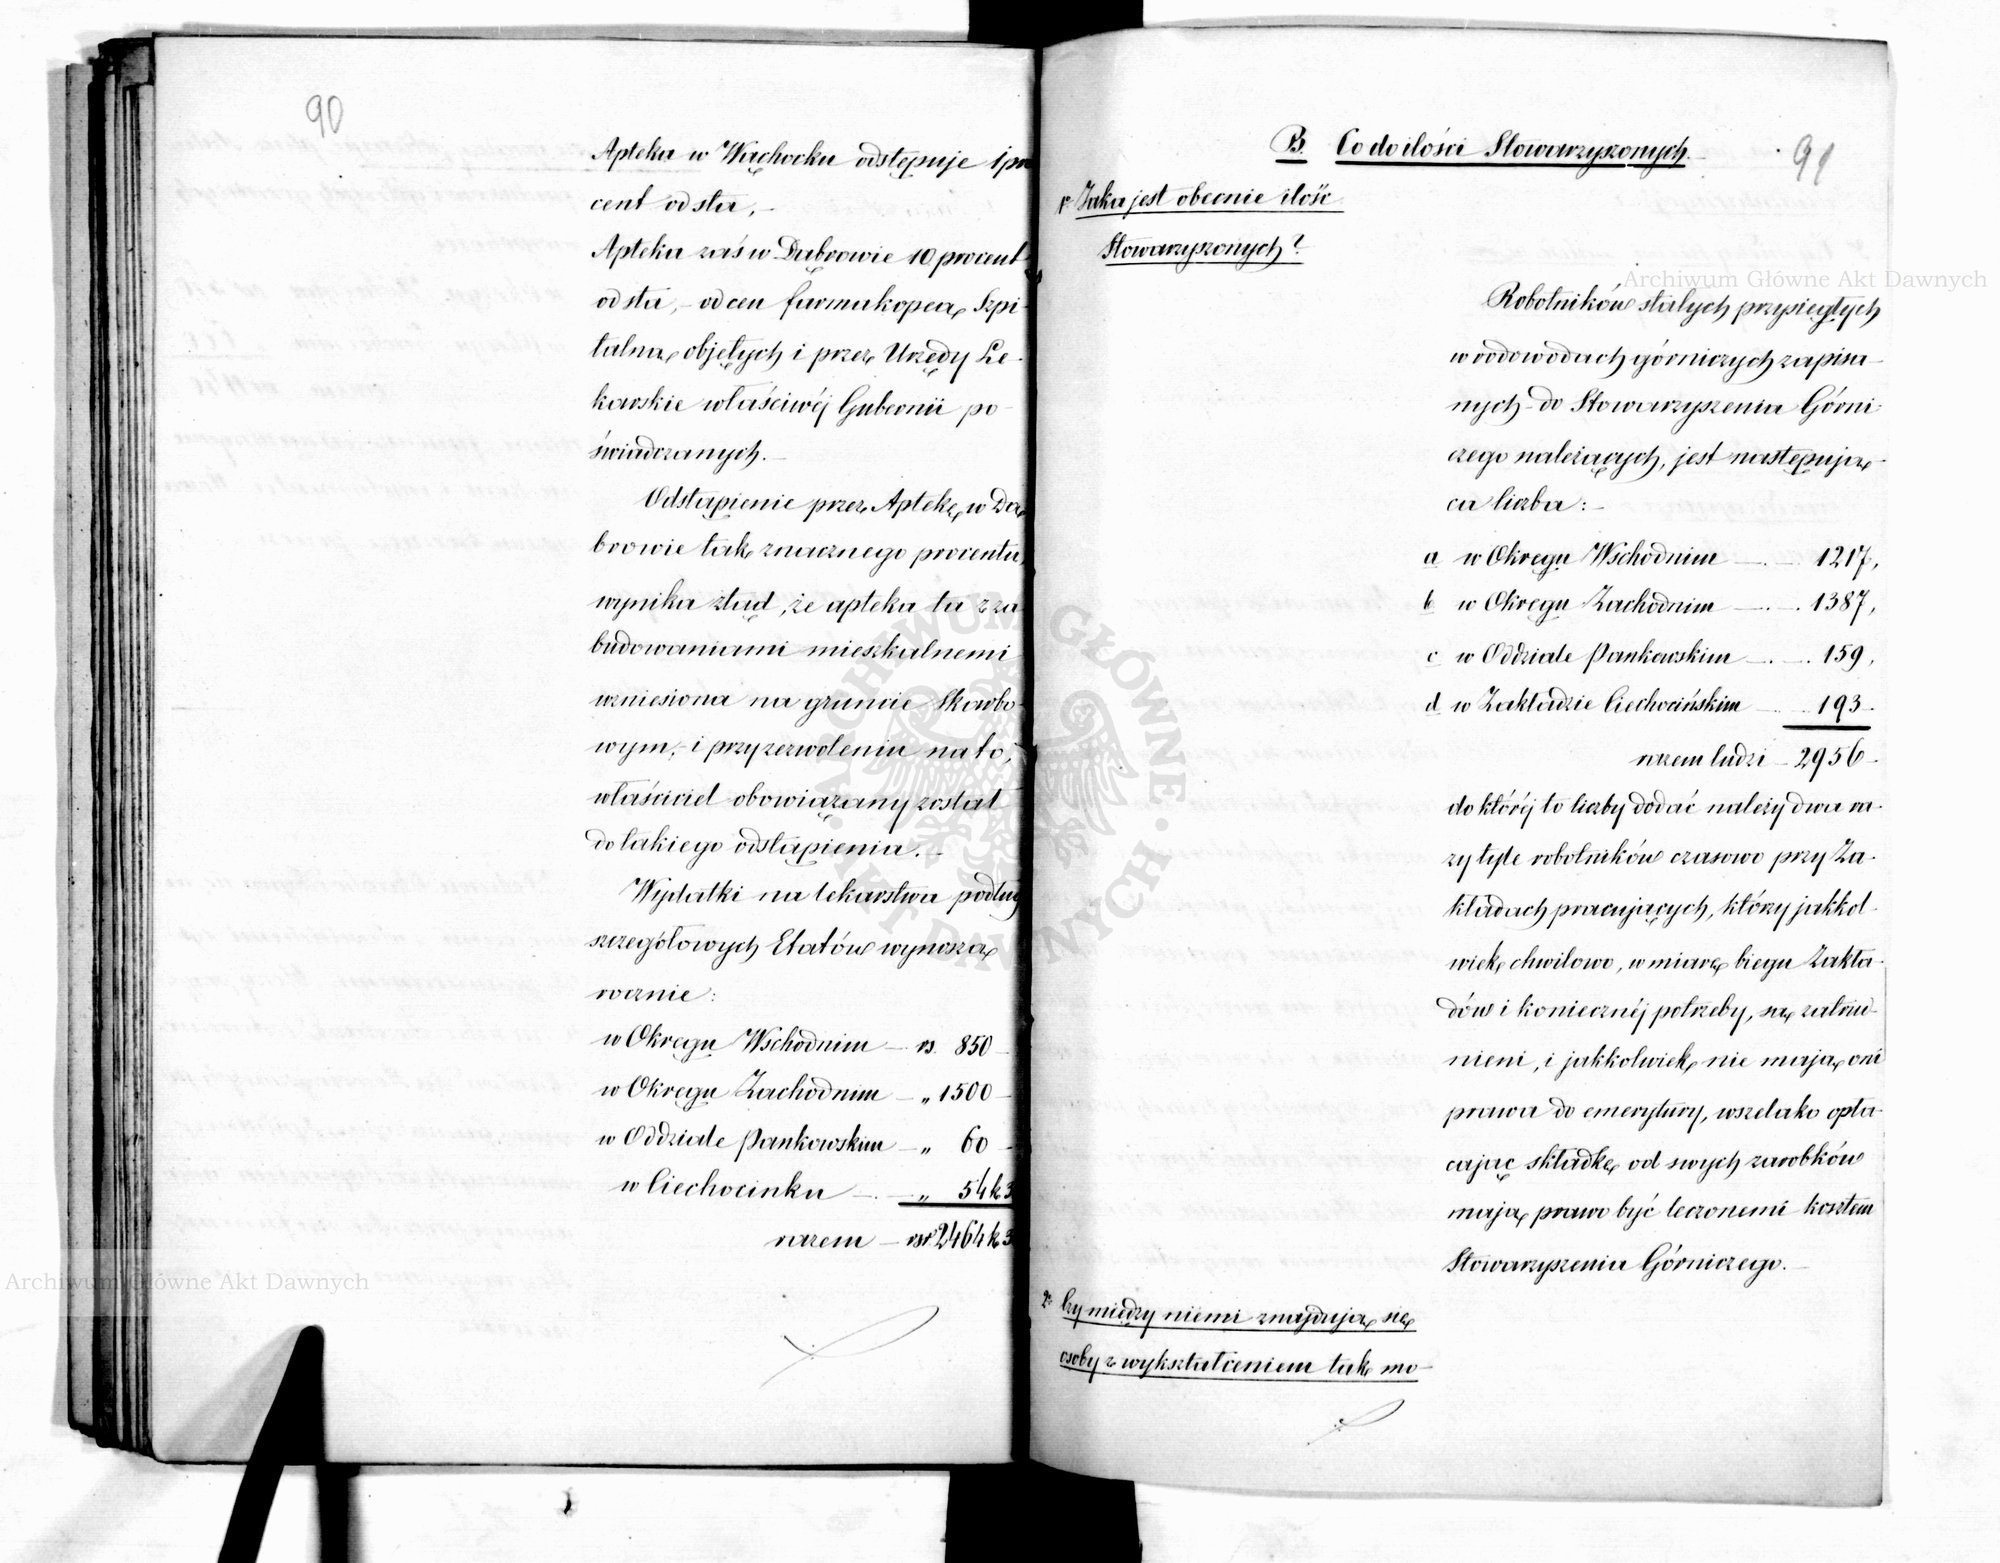 90
Apteka w Wąchocku odstępuje 1 pro
cent od sta, –
Apteka zaś w Dąbrowie 10 procent
od sta, – od cen farmakopeą Szpi-
talną objętych i przez Urzędy Le-
karskie właściwéj Gubernii po-
świadczanych. –
Odstąpienie przez Aptekę w Dą
browie tak znacznego procentu,
wynika ztąd, że apteka ta z za
budowaniami mieszkalnemi
wzniesiona na gruncie Skarbo-
wym, – i przy zezwoleniu na to,
właściciel obowiązany został
do takiego odstąpienia. –
Wydatki na lekarstwa podług
szczegółowych Etatów wynoszą
rocznie:
w Okręgu Wschodnim — rs. 850 –
w Okręgu Zachodnim — „ 1500 –
w Oddziale Pankowskim — „ 60 –
w Ciechocinku — . — „ 54 k 3
razem — rsr 2464 k 3
91
B. Co do ilości Stowarzyszonych. –
1º Jaka jest obecnie ilość
Stowarzyszonych?
Robotników stałych przysięgłych
w rodowodach górniczych zapisa-
nych – do Stowarzyszenia Górni-
czego należących, jest następują-
ca liczba: –
a w Okręgu Wschodnim — . — 1217,
b w Okręgu Zachodnim — . — 1387,
c w Oddziale Pankowskim — . — 159,
d w Zakładzie Ciechocińskim — 193 –
razem ludzi – 2956 –
do któréj to liczby dodać należy dwa ra-
zy tyle robotników czasowo przy Za-
kładach pracujących, którzy jakkol-
wiek chwilowo, w miarę biegu Zakła-
dów i koniecznéj potrzeby, są zatrud-
nieni, i jakkolwiek nie mają oni
prawa do emerytury, wszelako opła-
cając składkę od swych zarobków
mają prawo być leczonemi kosztem
Stowarzyszenia Górniczego. –
2º Czy między niemi znajdują się
osoby z wykształceniem tak mo-
Archiwum Główne Akt Dawnych
Archiwum Główne Akt Dawnych
ARCHIWUM GŁÓWNE · AKT DAWNYCH ·